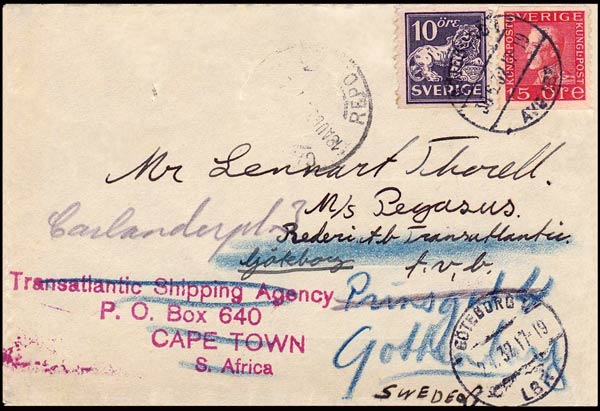 10 öre
SVERIGE
SVERIGE
KUNGL·POST
KUNGL·POST
15 ÖRE
REPO
Mr Lennart Thorell.
M/s Pegasus.
Carlanderpl. 3
Rederi A.b. Transatlantic.
Göteborg
f.v.b.
Transatlantic Shipping Agency
P. O. Box 640
CAPE TOWN
S. Africa
Gothenburg
GÖTEBORG
32.17-19
LBR
SWEDEN